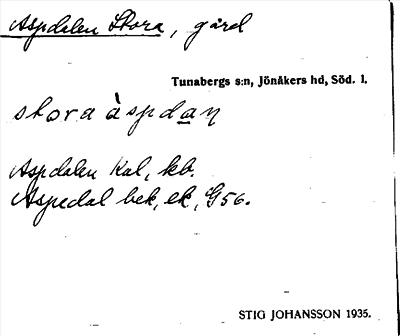 Aspdalen Stora, gård
Tunabergs s:n, Jönåkers hd, Söd. l.
stora àspdaṉ
Aspdalen Kal, kb.
Aspedal bek, ek, G56.
STIG JOHANSSON 1935.